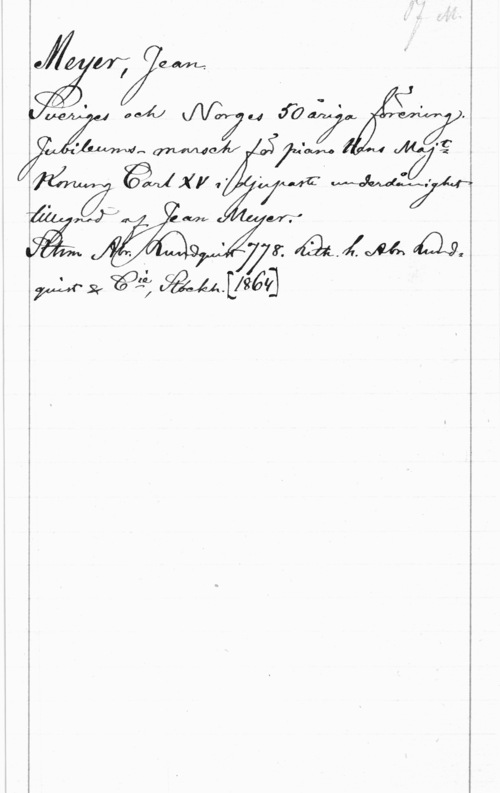 Pf M.
Meyer, Jean.
Sveriges och Norges 50åriga förening.
Jubileums- marsch för piano Hans Maj:t
Konung Carl XV i djupaste underdånighet
tillegnad af Jean Meyer.
Sthm Abr. Lundquist 778. Lith. h. Abr Lund-
quist & C:ie, Stockh. [1864]